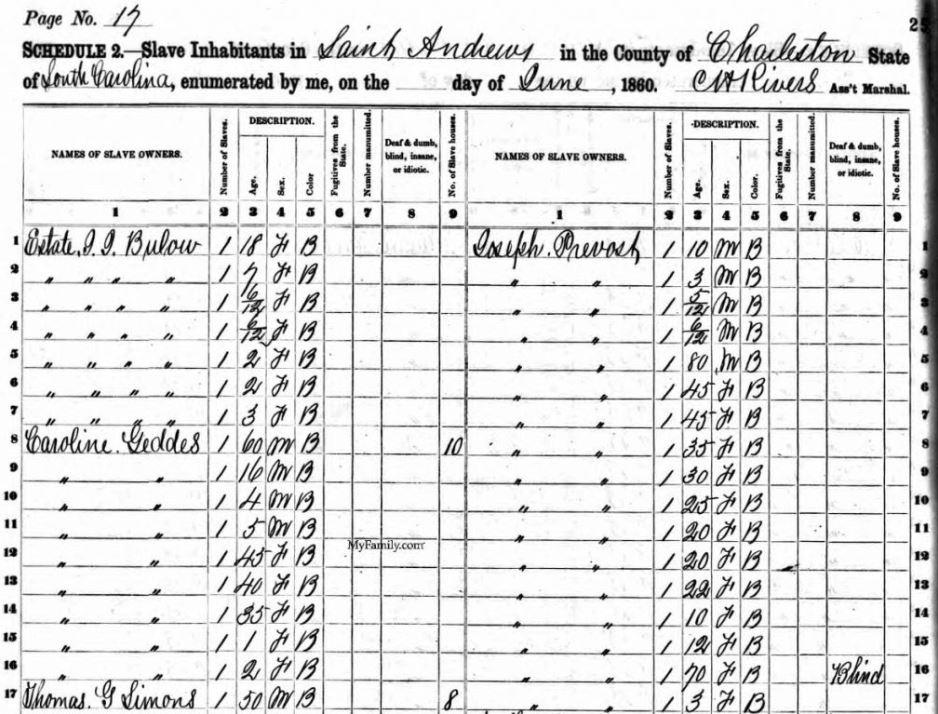 Page No. 17
25
SCHEDULE 2.—Slave Inhabitants in Saint Andrews in the County of Charleston State
of South Carolina, enumerated by me, on the day of June, 1860. C H Rivers Ass't Marshal.
NAMES OF SLAVE OWNERS. Number of Slaves. DESCRIPTION. Age. Sex. Color Fugitives from the State. Number manumitted. Deaf & dumb, blind, insane, or idiotic. No. of Slave houses. NAMES OF SLAVE OWNERS. Number of Slaves. DESCRIPTION. Age. Sex. Color. Fugitives from the State. Number manumitted. Deaf & dumb, blind, insane, or idiotic. No. of Slave houses.
1 2 3 4 5 6 7 8 9 1 2 3 4 5 6 7 8 9
1 Estate. J. J. Bulow 1 18 F B Joseph. Prevost 1 10 M B 1
2 " " " " 1 7 F B " " 1 3 M B 2
3 " " " " 1 6/12 F B " " 1 5/12 M B 3
4 " " " " 1 6/12 F B " " 1 6/12 M B 4
5 " " " " 1 2 F B " " 1 80 M B 5
6 " " " " 1 2 F B " " 1 45 F B 6
7 " " " " 1 3 F B " " 1 45 F B 7
8 Caroline. Geddes 1 60 M B 10 " " 1 35 F B 8
9 " " 1 16 M B " " 1 30 F B 9
10 " " 1 4 M B " " 1 25 F B 10
11 " " 1 5 M B " " 1 20 F B 11
MyFamily.com
12 " " 1 45 F B " " 1 20 F B 12
13 " " 1 40 F B " " 1 22 F B 13
14 " " 1 35 F B " " 1 10 F B 14
15 " " 1 1 F B " " 1 12 F B 15
16 " " 1 2 F B " " 1 70 F B Blind 16
17 Thomas. G Simons 1 50 M B 8 " " 1 3 F B 17